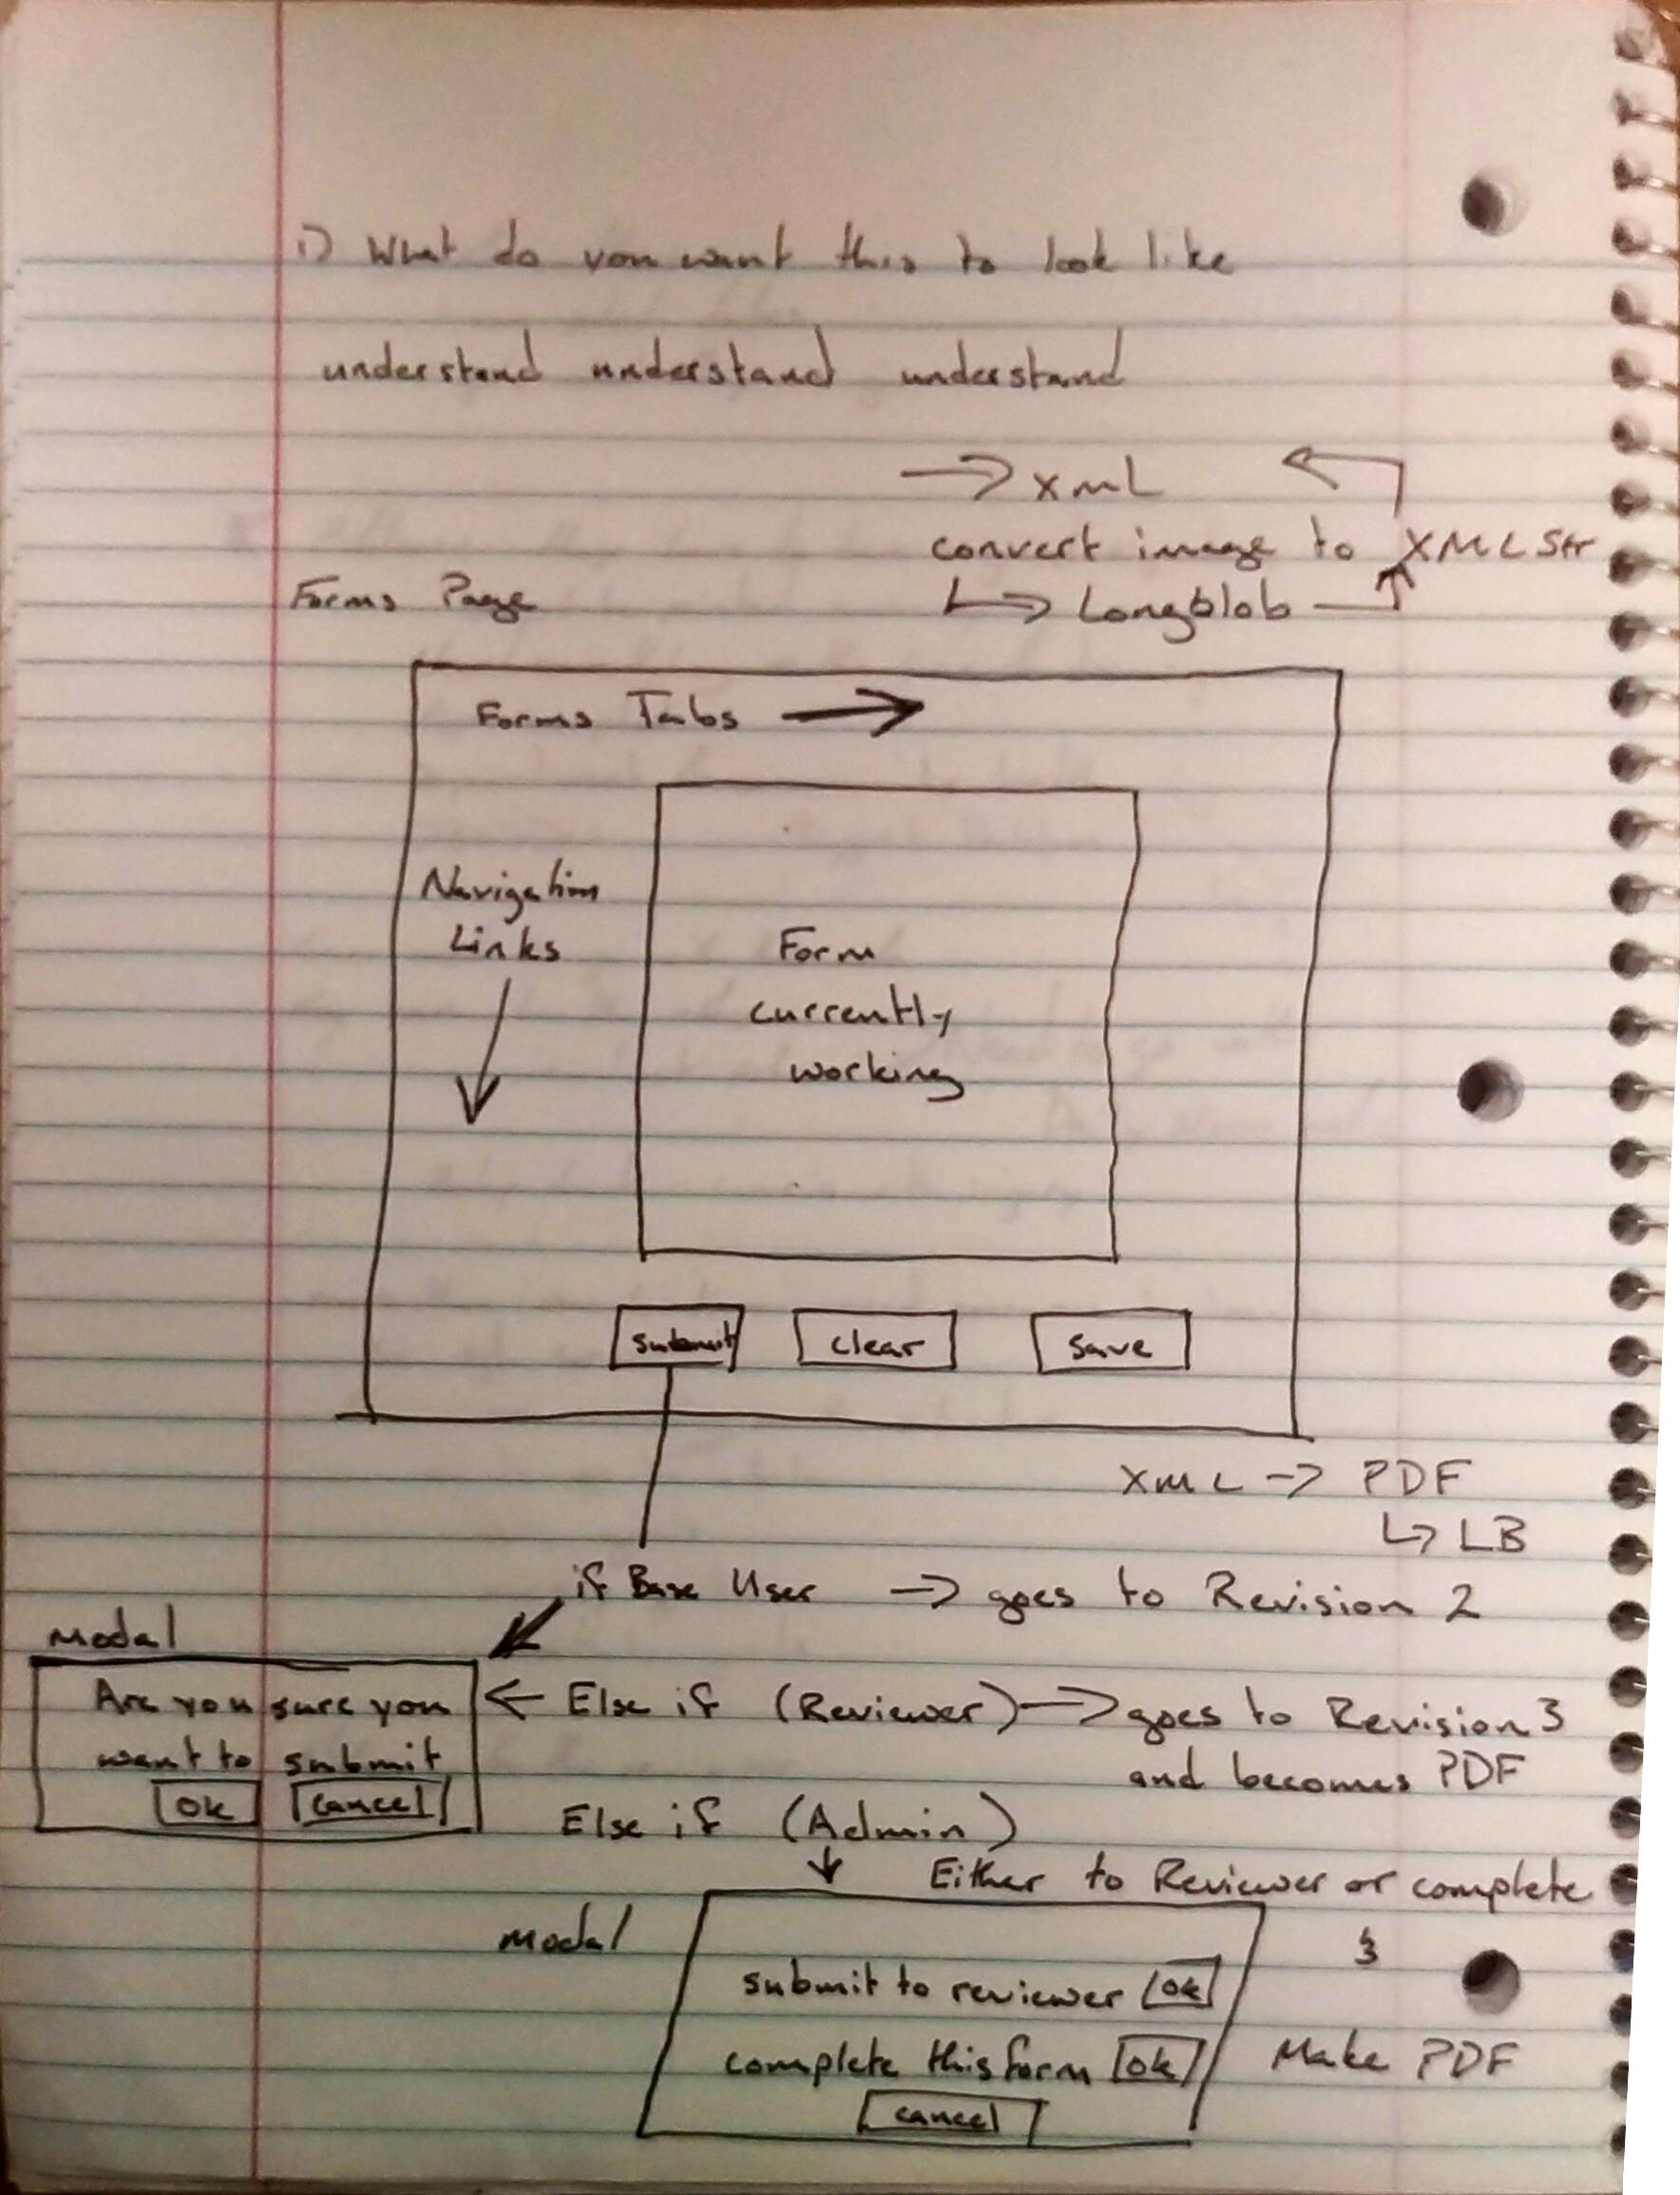 1) What do you want this to look like
understand understand understand
→ XML
convert image to XMLStr
↳ Longblob
Forms Page
Forms Tabs →
Navigation
Links
Form
currently
working
submit clear save
XML → PDF
↳ LB
if Base User → goes to Revision 2
Modal
Are you sure you
want to submit
ok cancel
← Else if (Reviewer) → goes to Revision 3
and becomes PDF
Else if (Admin)
Either to Reviewer or complete
3
Modal
submit to reviewer ok
complete this form ok
cancel
Make PDF